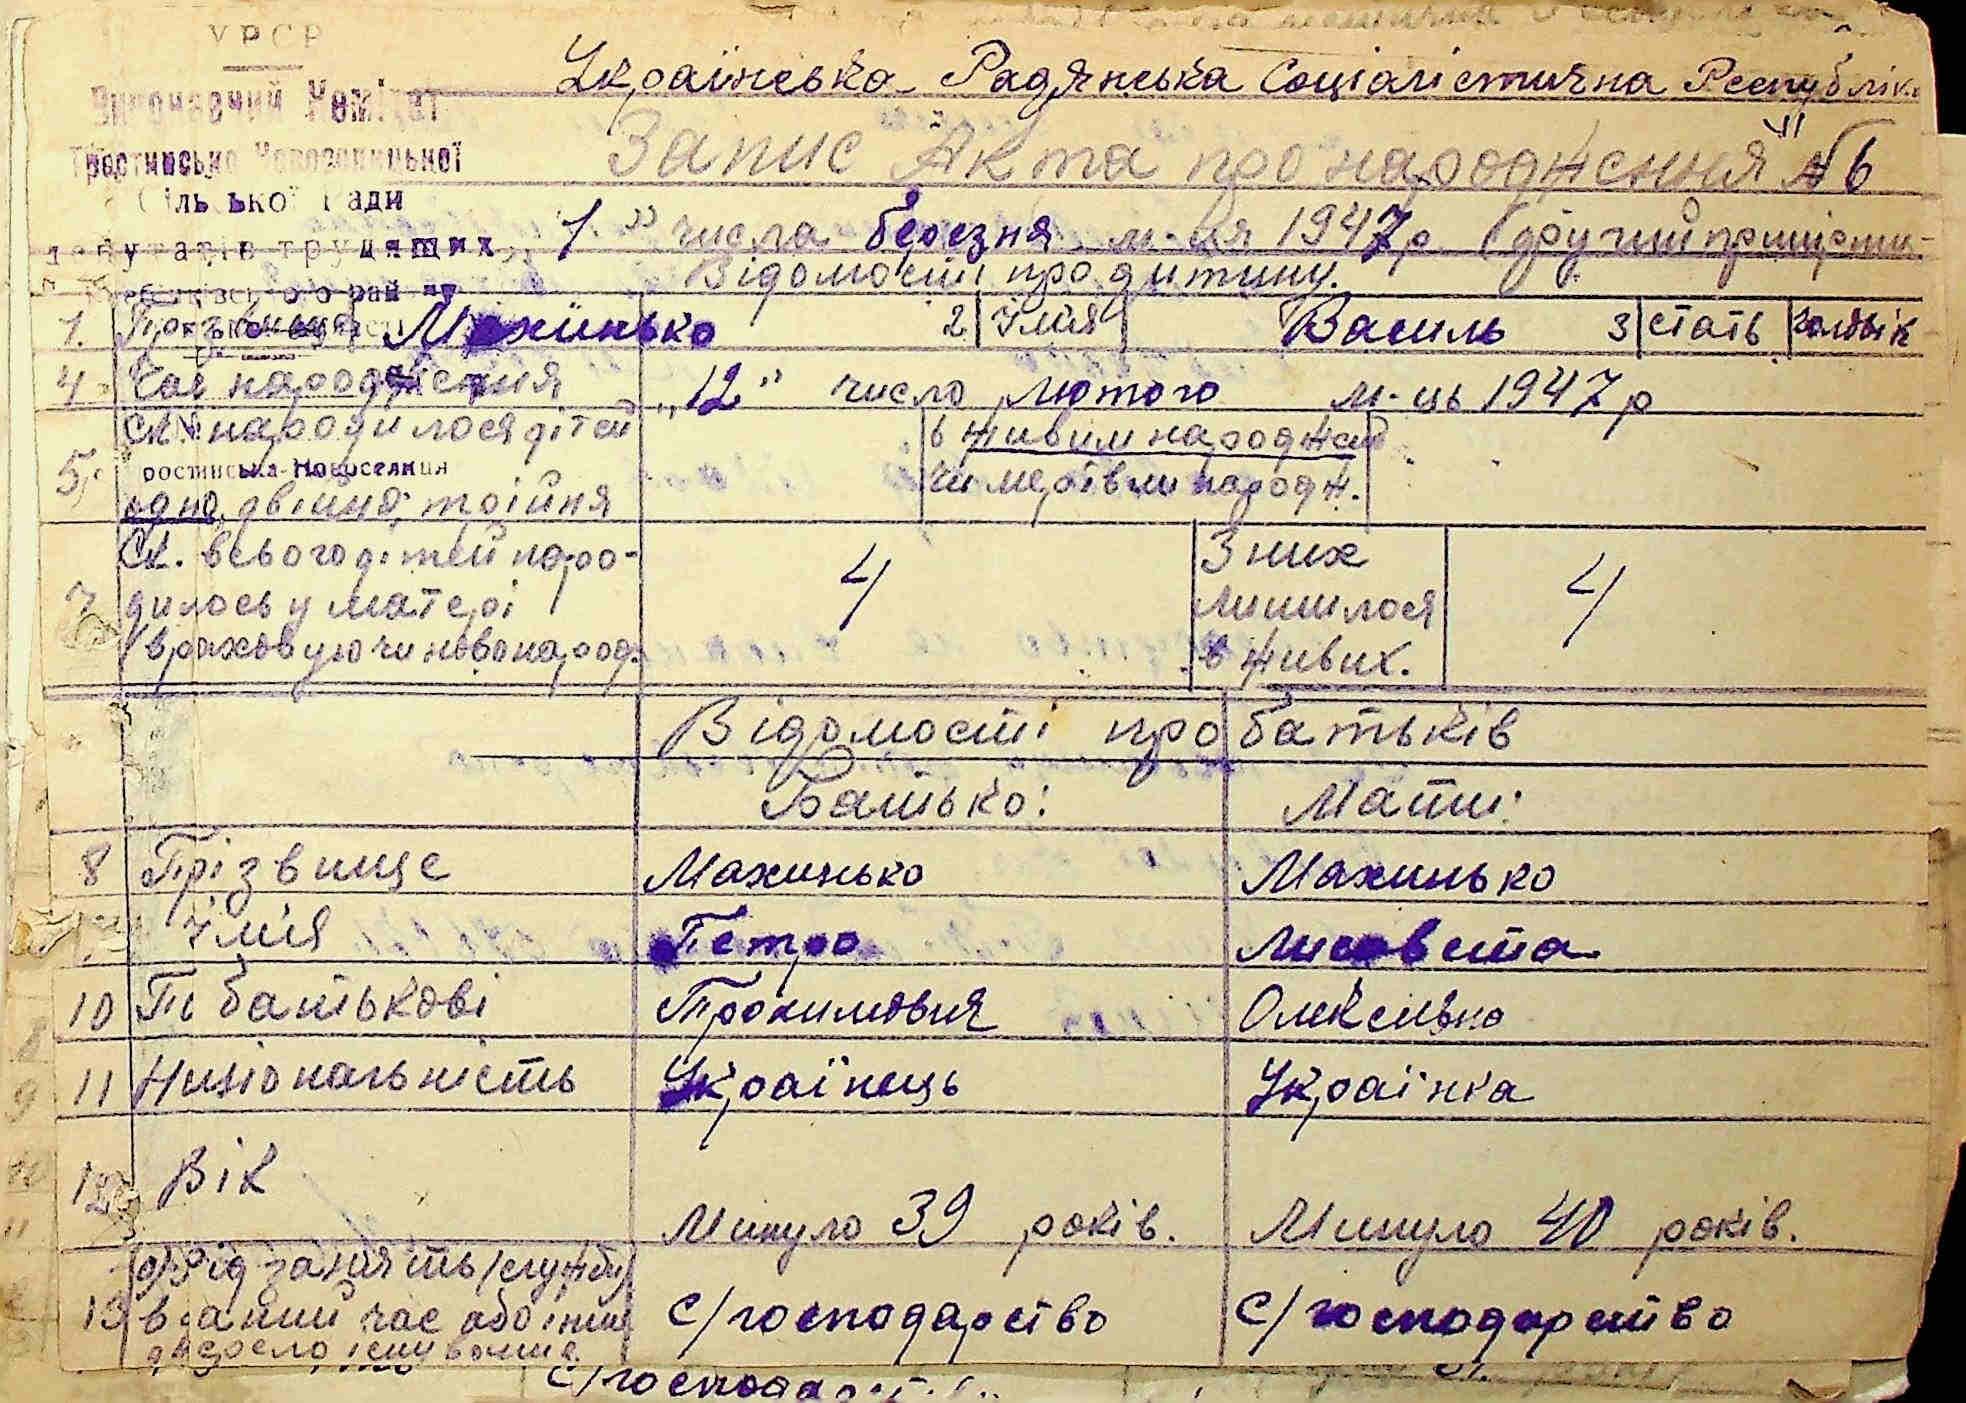 УРСР
Виконавчий Комітет
Сільської Ради
депутатів трудящих
Українська Радянська Соціалістична Республіка
Запис Акта про народження № 6
"1" числа березня м-ця 1947 р (другий примірник
Відомості про дитину.
1. Прізвище Махинько 2 Імя Василь 3 стать чоловік
4. Час народження "12" число лютого м-ць 1947 р
5. Ск. народилося дітей
ростинська-Новоселиця
одно, двійня, трійня
живим народжен
чи мертвим народж.
7 Ск. всього дітей наро-
дилось у матері
(враховуючи новонарод.
4
З них
лишилося
в живих.
4
Відомості про батьків
Батько: Мати:
8 Прізвище Махинько Махинько
Імя Петро Лисавета
10 По батькові Трохимович Олексіївна
11 Національність Українець Українка
12 Вік Минуло 39 років. Минуло 40 років.
13 а) Рід занять (служби)
в даний час або інше
джерело існування
С/господарство С/господарство
С/господар